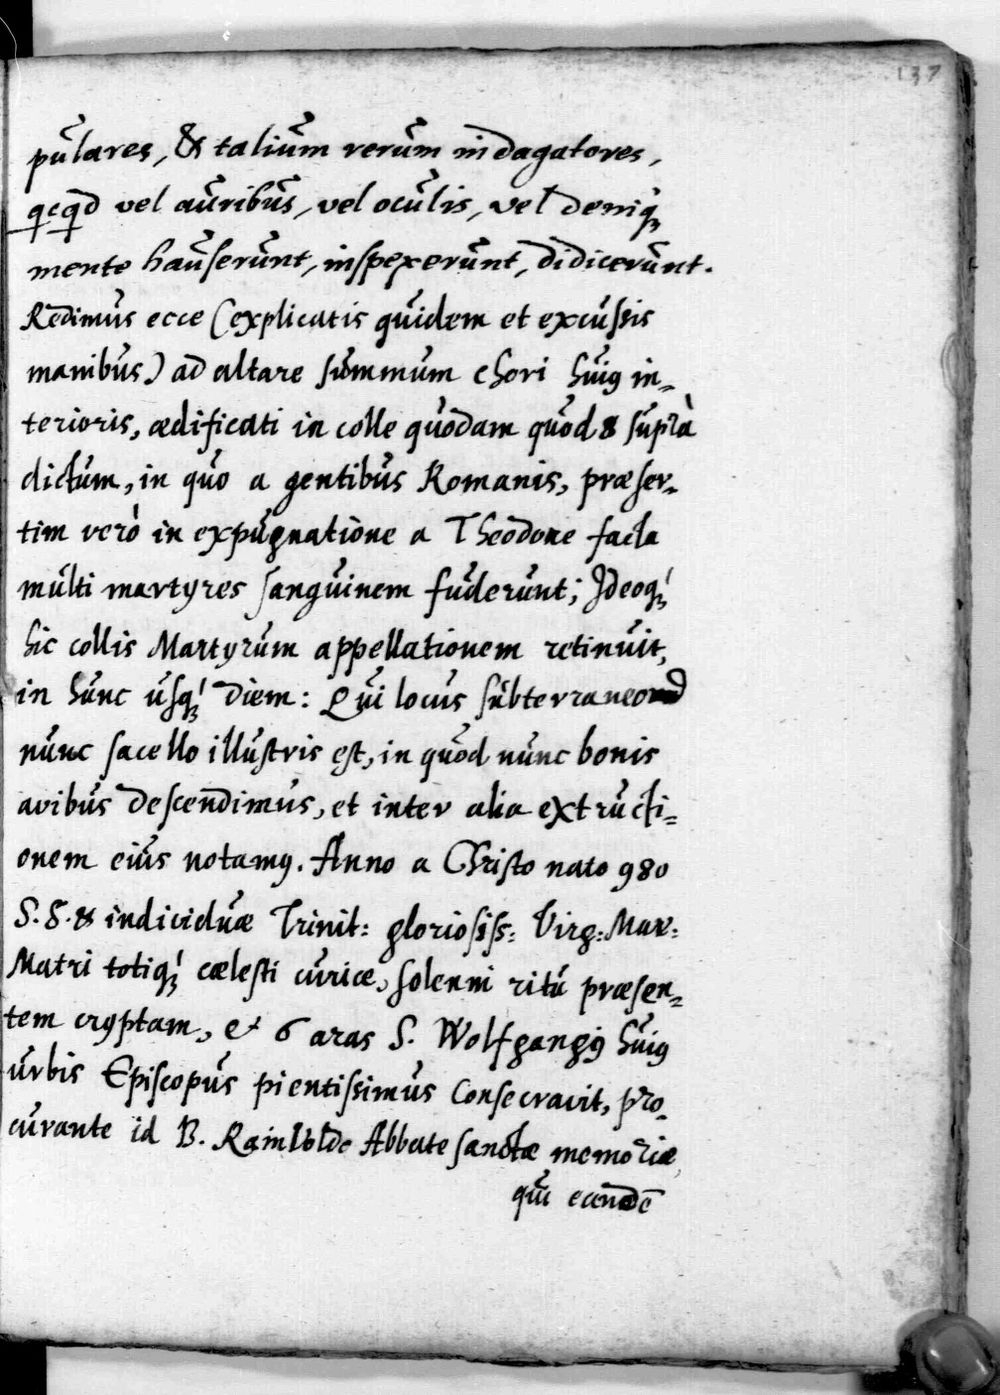 137
pulares, & talium rerum indagatores,
qcqd vel auribus, vel oculis, vel deniq;
mente hauserunt, inspexerunt, didicerunt.
Redimus ecce (explicatis quidem et excussis
manibus) ad altare summum chori huiq in=
terioris, ædificati in colle quodam quod & suprà
dictum, in quo a gentibus Romanis, præser=
tim verò in expugnatione a Theodone facta
multi martyres sanguinem fuderunt; Ideoq;
hic collis Martyrum appellationem retinuit,
in hunc usq; diem: Qui locus subterraneo
nunc sacello illustris est, in quod nunc bonis
avibus descendimus, et inter alia extructi=
onem eius notamq. Anno a Christo nato 980
S. S. & individuæ Trinit: gloriosiss: Virg: Mar:
Matri totiq; cælesti curiæ, solenni ritu præsen=
tem cryptam, et 6 aras S. Wolfgangq huiq
urbis Episcopus pientissimus Consecravit, pro=
curante id B. Ramwoldo Abbate sanctæ memoriæ
qui eandē